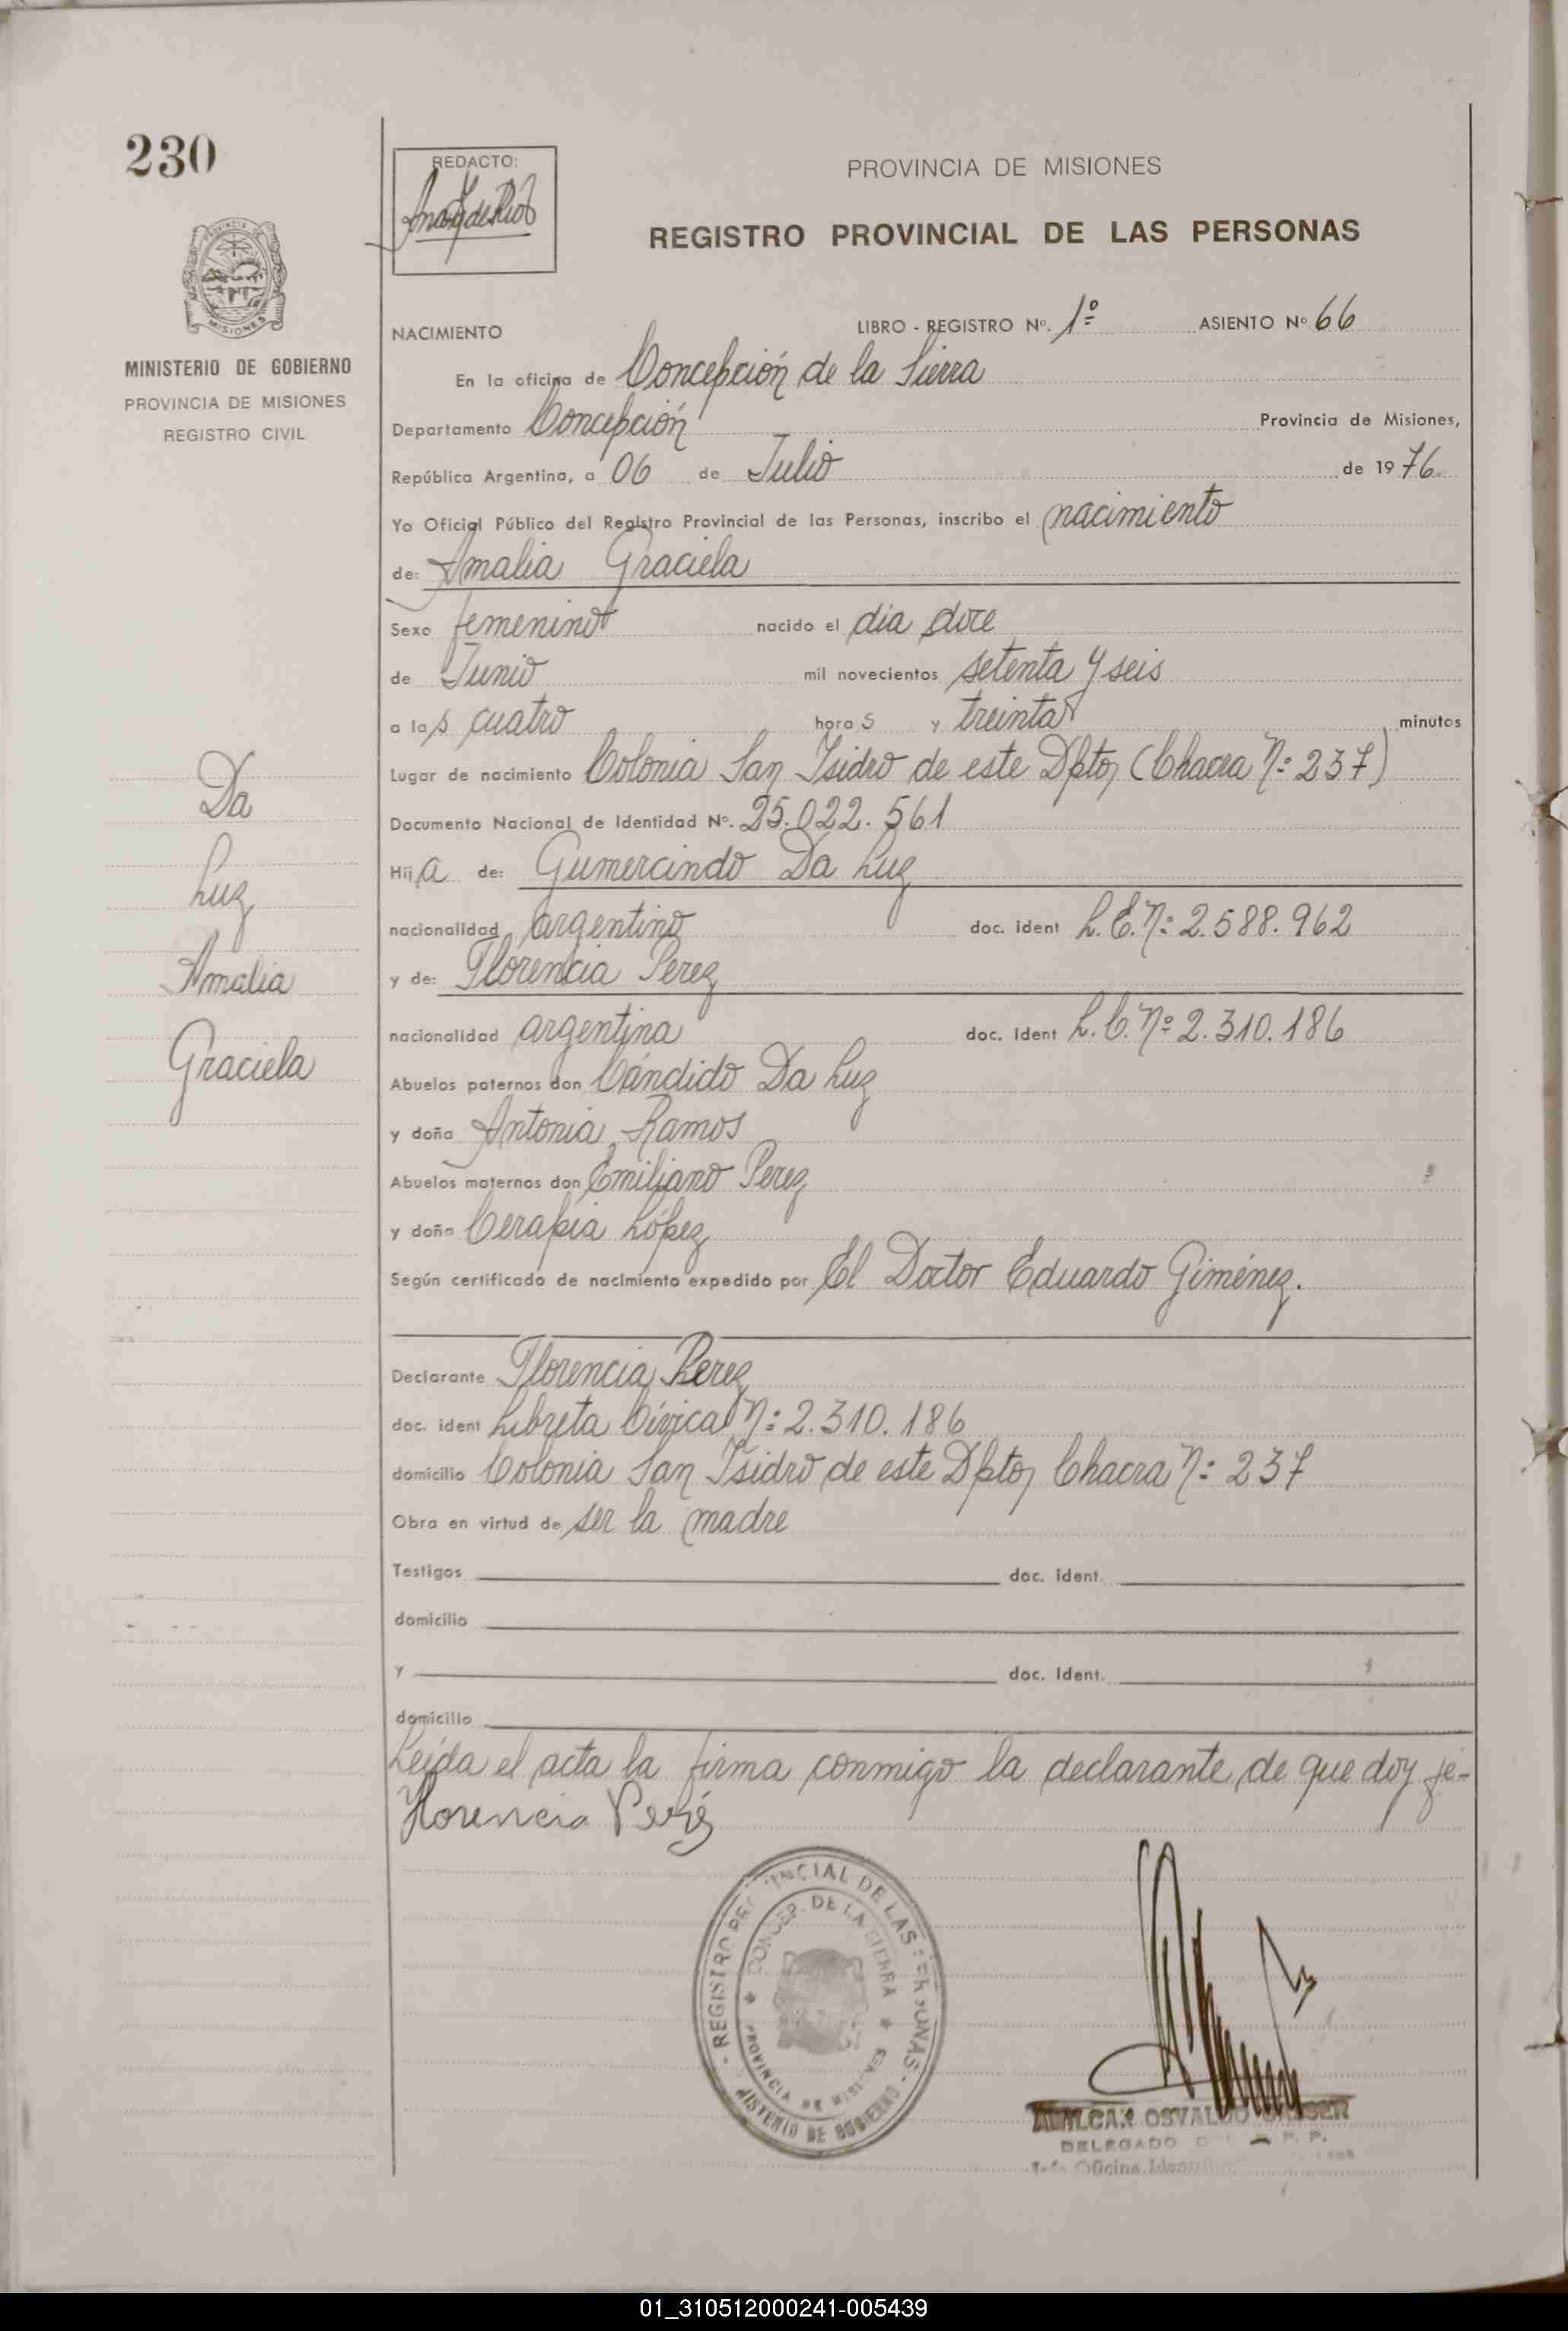 230
REDACTO:
PROVINCIA DE MISIONES
REGISTRO PROVINCIAL DE LAS PERSONAS
MISIONES
MINISTERIO DE GOBIERNO
PROVINCIA DE MISIONES
REGISTRO CIVIL
NACIMIENTO LIBRO - REGISTRO Nº. 1º ASIENTO Nº 66
En la oficina de Concepción de la Sierra
Departamento Concepción Provincia de Misiones,
República Argentina, a 06 de Julio de 1976
Yo Oficial Público del Registro Provincial de las Personas, inscribo el nacimiento
de: Amalia Graciela
Sexo femenino nacido el dia doce
de Junio mil novecientos setenta y seis
a las cuatro horas y treinta minutos
Lugar de nacimiento Colonia San Isidro de este Dpto, (Chacra Nº 237)
Documento Nacional de Identidad Nº. 25.022.561
Hija de: Gumercindo Da Luz
nacionalidad argentino doc. ident L.E. Nº 2.588.962
y de: Florencia Perez
nacionalidad argentina doc. ident L.C. Nº 2.310.186
Abuelos paternos don Cándido Da Luz
y doña Antonia Ramos
Abuelos maternos don Emiliano Perez
y doña Cerapia López
Según certificado de nacimiento expedido por El Doctor Eduardo Giménez.
Da
Luz
Amalia
Graciela
Declarante Florencia Perez
doc. ident Libreta Cívica Nº 2.310.186
domicilio Colonia San Isidro de este Dpto, Chacra Nº 237
Obra en virtud de ser la madre
Testigos doc. ident.
domicilio
y doc. Ident.
domicilio
Leída el acta la firma conmigo la declarante, de que doy fé-
Florencia Peréz
REGISTRO PROVINCIAL DE LAS PERSONAS
CONCEP. DE LA SIERRA
PROVINCIA DE MISIONES
MINISTERIO DE GOBIERNO
OSVALDO
DELEGADO
Oficina
01_310512000241-005439